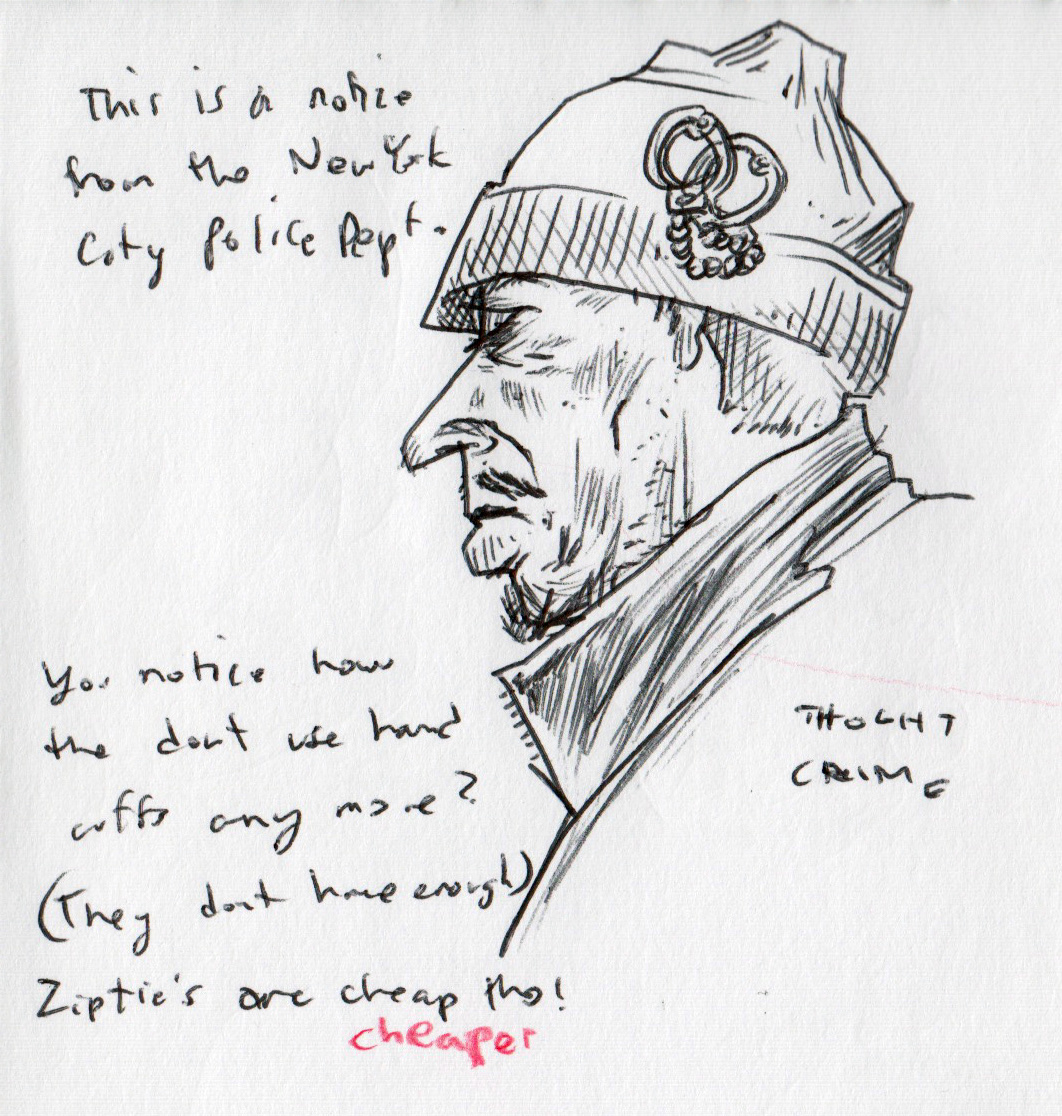 This is a notice
from the New York
City Police Dept.
You notice how
the dont use hand
cuffs any more?
(They dont have enough)
Ziptie's are cheap tho!
cheaper
THOGHT
CRIME